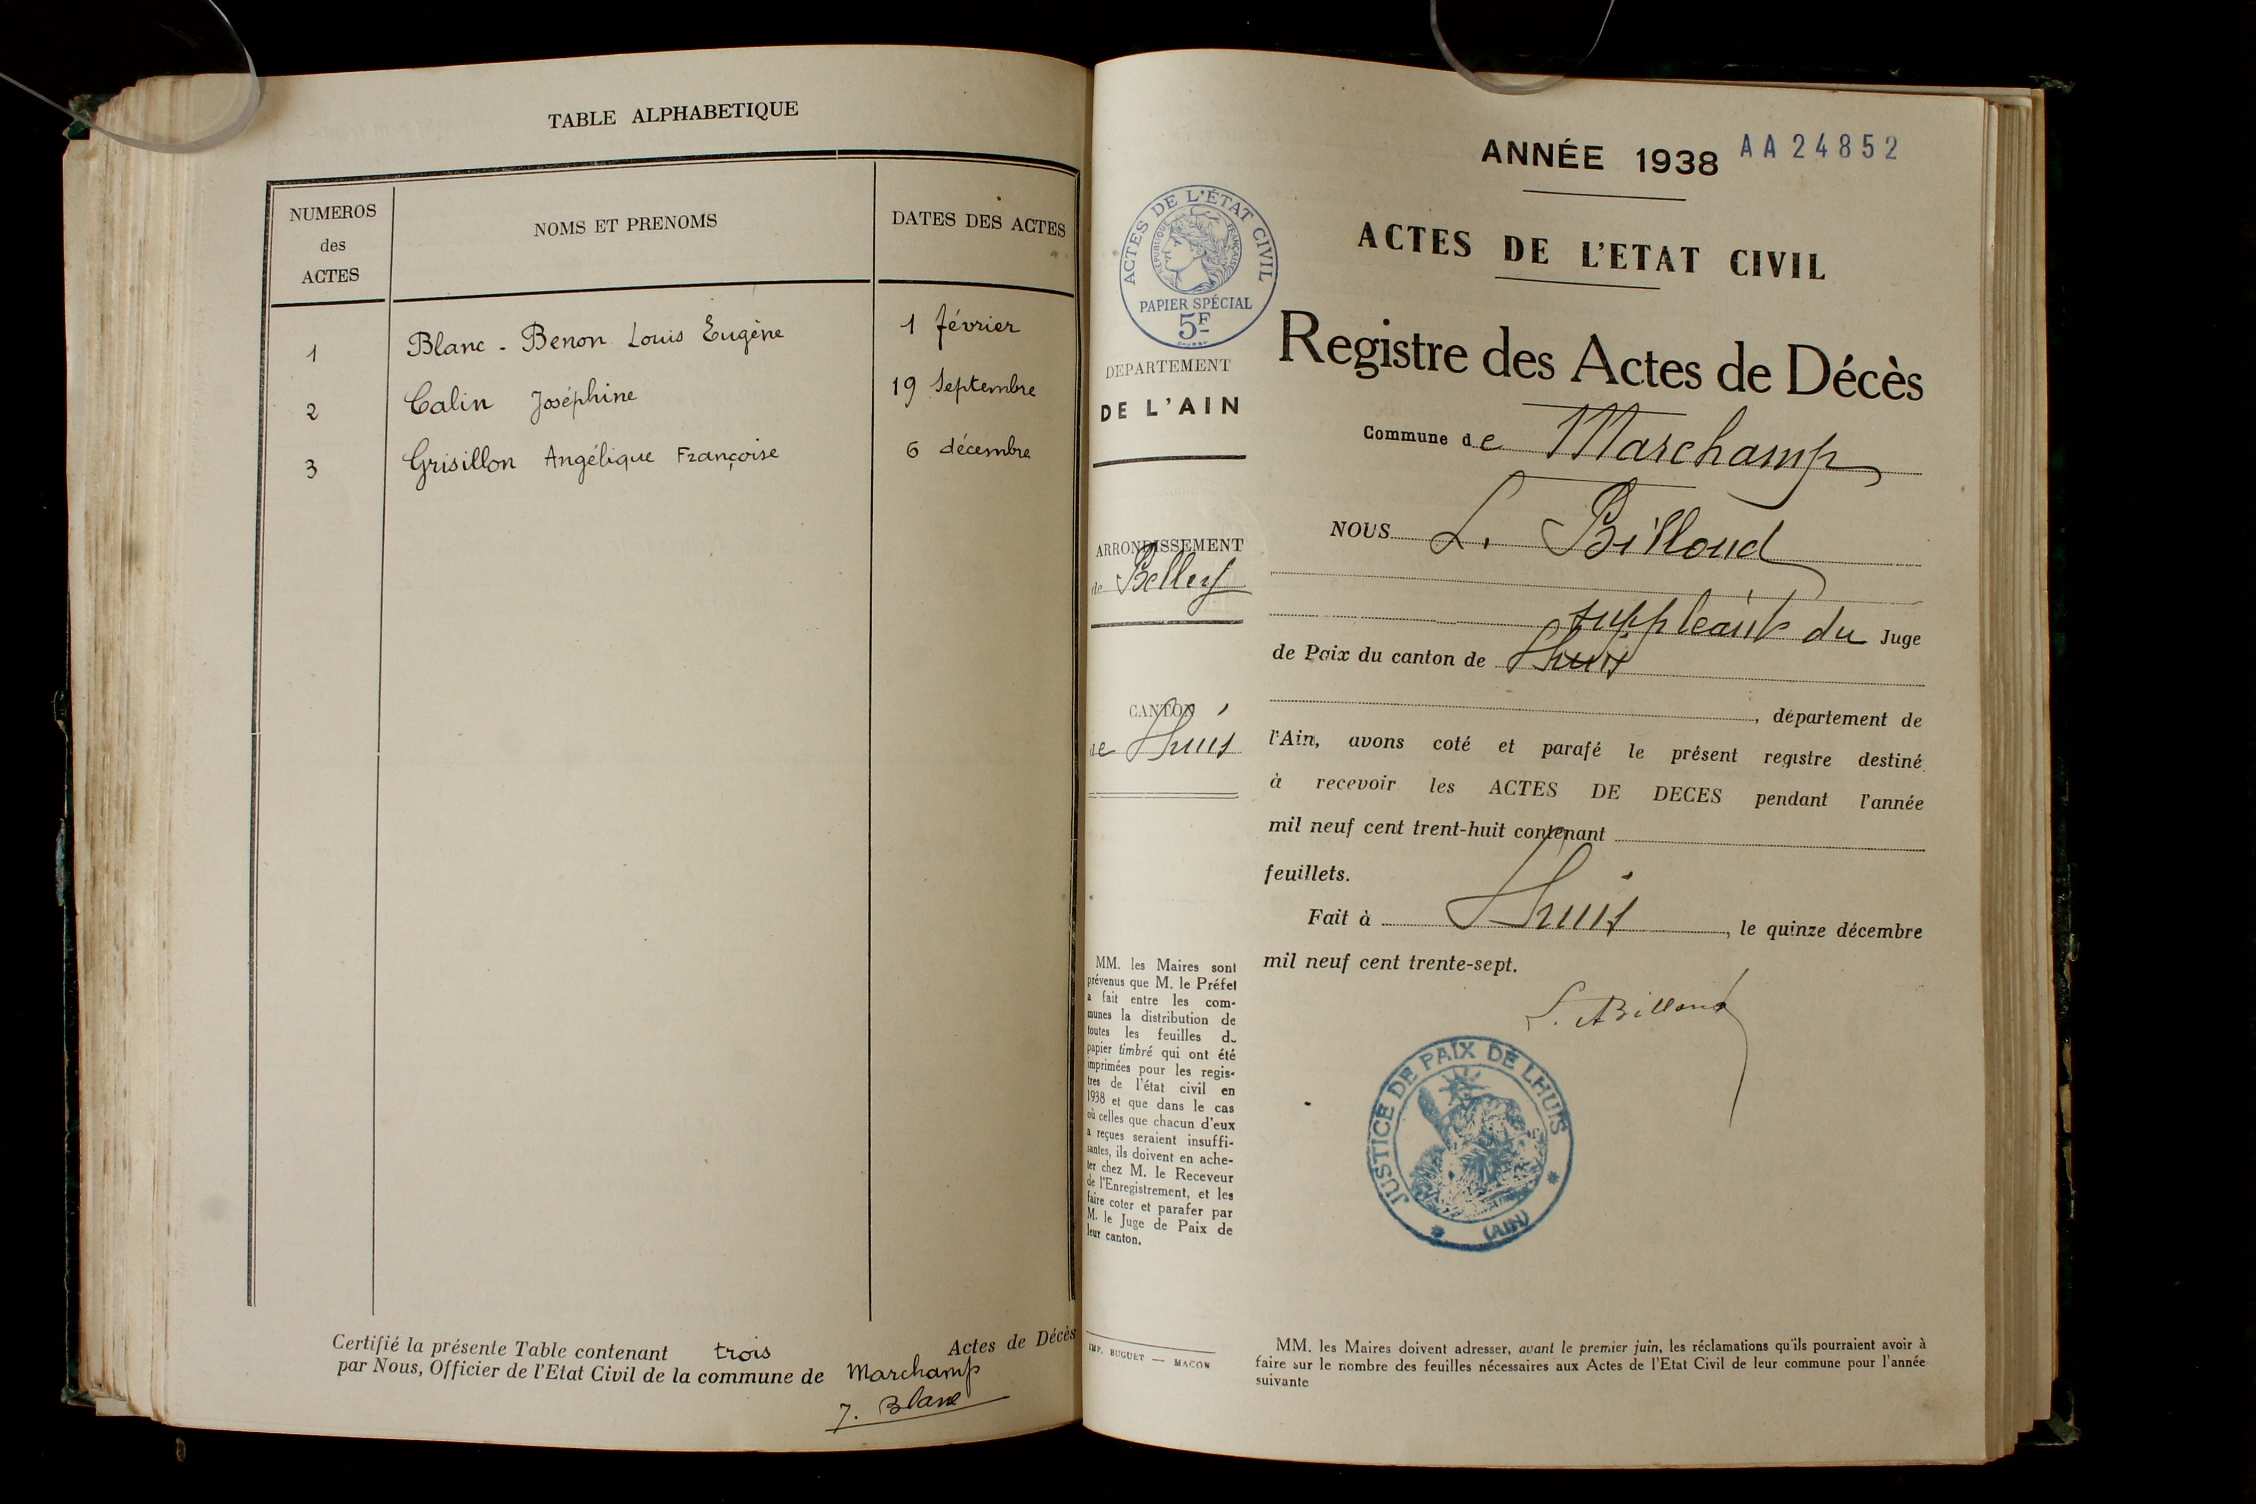 TABLE ALPHABETIQUE
NUMEROS
des
ACTES
NOMS ET PRENOMS
DATES DES ACTES
1 Blanc - Benon Louis Eugène 1 février
2 Calin Joséphine 19 Septembre
3 Grisillon Angélique Françoise 6 décembre
Certifié la présente Table contenant trois Actes de Décès
par Nous, Officier de l'Etat Civil de la commune de Marchamp
J. Blanc
ACTES DE L'ÉTAT CIVIL
RÉPUBLIQUE FRANÇAISE
PAPIER SPÉCIAL
5F
DEPARTEMENT
DE L'AIN
ARRONDISSEMENT
de Belley
CANTON
de Lhuis
MM. les Maires sont
prévenus que M. le Préfet
a fait entre les com-
munes la distribution de
toutes les feuilles de
papier timbré qui ont été
imprimées pour les regis-
tres de l'état civil en
1938 et que dans le cas
où celles que chacun d'eux
a reçues seraient insuffi-
santes, ils doivent en ache-
ter chez M. le Receveur
de l'Enregistrement, et les
faire coter et parafer par
M. le Juge de Paix de
leur canton.
IMP. BUGUET — MACON
ANNÉE 1938 AA24852
ACTES DE L'ETAT CIVIL
Registre des Actes de Décès
Commune de Marchamp
NOUS L. Billoud
suppléant du Juge
de Paix du canton de Lhuis
, département de
l'Ain, avons coté et parafé le présent registre destiné
à recevoir les ACTES DE DECES pendant l'année
mil neuf cent trent-huit contenant
feuillets.
Fait à Lhuis, le quinze décembre
mil neuf cent trente-sept.
L. Billoud
JUSTICE DE PAIX DE LHUIS
* (AIN) *
MM. les Maires doivent adresser, avant le premier juin, les réclamations qu'ils pourraient avoir à
faire sur le nombre des feuilles nécessaires aux Actes de l'Etat Civil de leur commune pour l'année
suivante